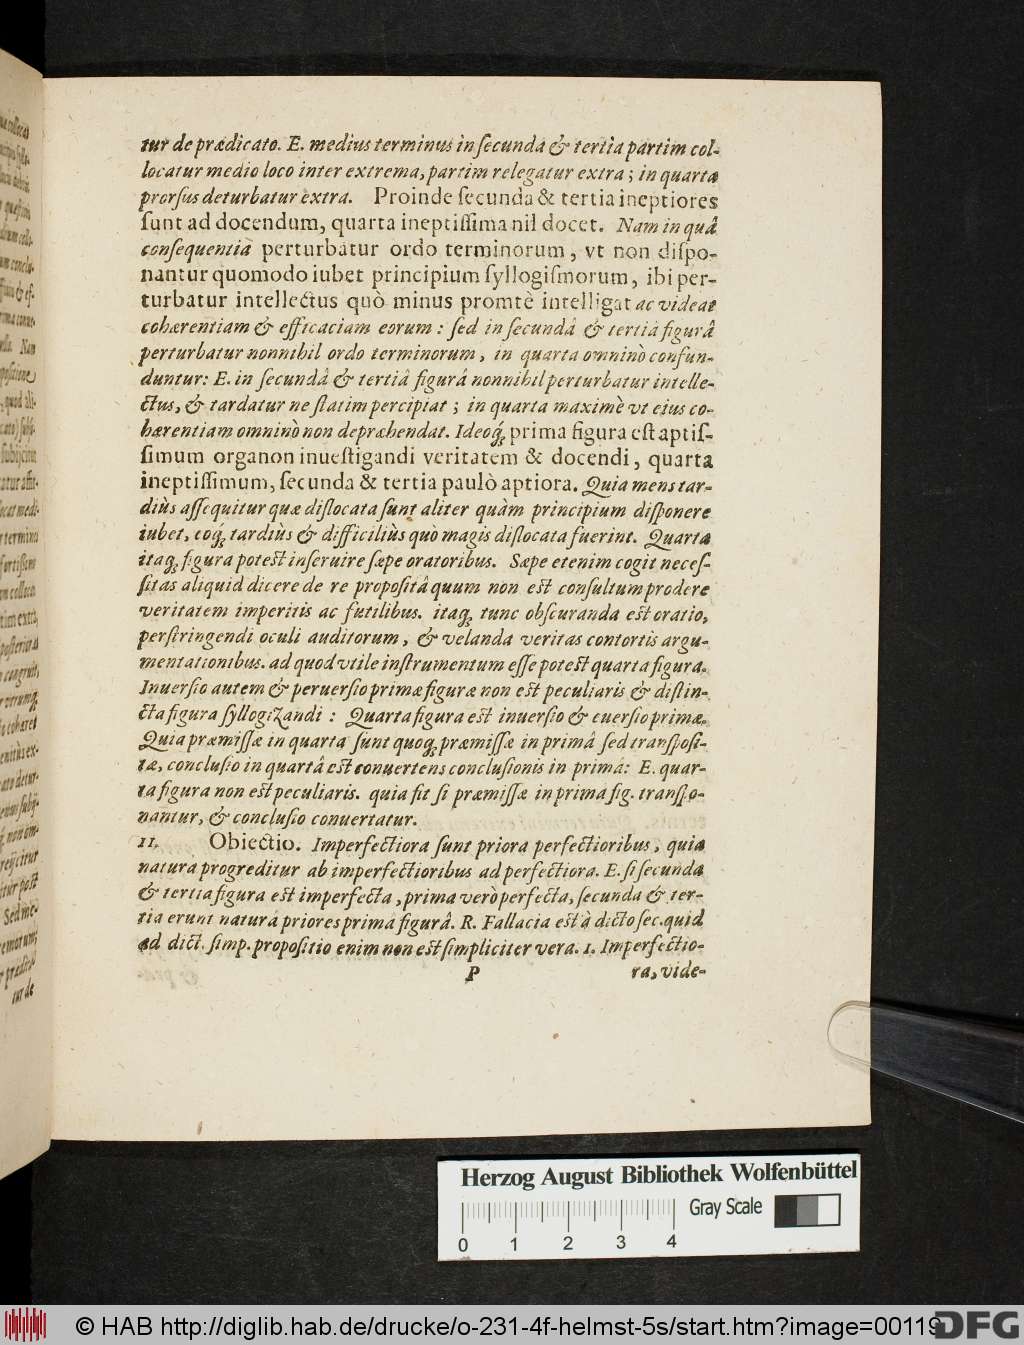 tur de prædicato. E. medius terminus in ſecundâ & tertia partim col-
locatur medio loco inter extrema, partim relegatur extra; in quarta
prorſus deturbatur extra. Proinde ſecunda & tertia ineptiores
ſunt ad docendum, quarta ineptiſſima nil docet. Nam in quâ
conſequentia perturbatur ordo terminorum, vt non diſpo-
nantur quomodo iubet principium ſyllogiſmorum, ibi per-
turbatur intellectus quò minus promtè intelligat ac videat
cohærentiam & efficaciam eorum: ſed in ſecundâ & tertiâ figurâ
perturbatur nonnihil ordo terminorum, in quarta omninò confun-
duntur: E. in ſecundâ & tertiâ figurâ nonnihil perturbatur intelle-
ctus, & tardatur ne ſtatim percipiat; in quarta maximè vt eius co-
hærentiam omninò non depræhendat. Ideoq́; prima figura eſt aptiſ-
ſimum organon inueſtigandi veritatem & docendi, quarta
ineptiſſimum, ſecunda & tertia paulò aptiora. Quia mens tar-
diùs aſſequitur quæ diſlocata ſunt aliter quàm principium diſponere
iubet, eoq́; tardiùs & difficiliùs quò magis diſlocata fuerint. Quarta
itaq; figura poteſt inſeruire ſæpe oratoribus. Sæpe etenim cogit neceſ-
ſitas aliquid dicere de re propoſitâ quum non eſt conſultum prodere
veritatem imperitis ac futilibus. itaq; tunc obſcuranda eſt oratio,
perſtringendi oculi auditorum, & velanda veritas contortis argu-
mentationibus. ad quod vtile inſtrumentum eſſe poteſt quarta figura.
Inuerſio autem & peruerſio primæ figuræ non eſt peculiaris & diſtin-
cta figura ſyllogizandi: Quarta figura eſt inuerſio & euerſio primæ.
Quia præmiſſæ in quarta ſunt quoq; præmiſſæ in primâ ſed tranſpoſi-
tæ, concluſio in quartâ eſt conuertens concluſionis in primâ: E. quar-
ta figura non eſt peculiaris. quia fit ſi præmiſſæ in prima fig. tranſpo-
nantur, & concluſio conuertatur.
11. Obiectio. Imperfectiora ſunt priora perfectioribus, quia
natura progreditur ab imperfectioribus ad perfectiora. E. ſi ſecunda
& tertia figura eſt imperfecta, prima verò perfecta, ſecunda & ter-
tia erunt naturâ priores primâ figurâ. R. Fallacia eſt à dicto ſec. quid
ad dict. ſimp. propoſitio enim non eſt ſimpliciter vera. 1. Imperfectio-
P ra, vide-
Herzog August Bibliothek Wolfenbüttel
Gray Scale
0 1 2 3 4
© HAB http://diglib.hab.de/drucke/o-231-4f-helmst-5s/start.htm?image=00119
DFG